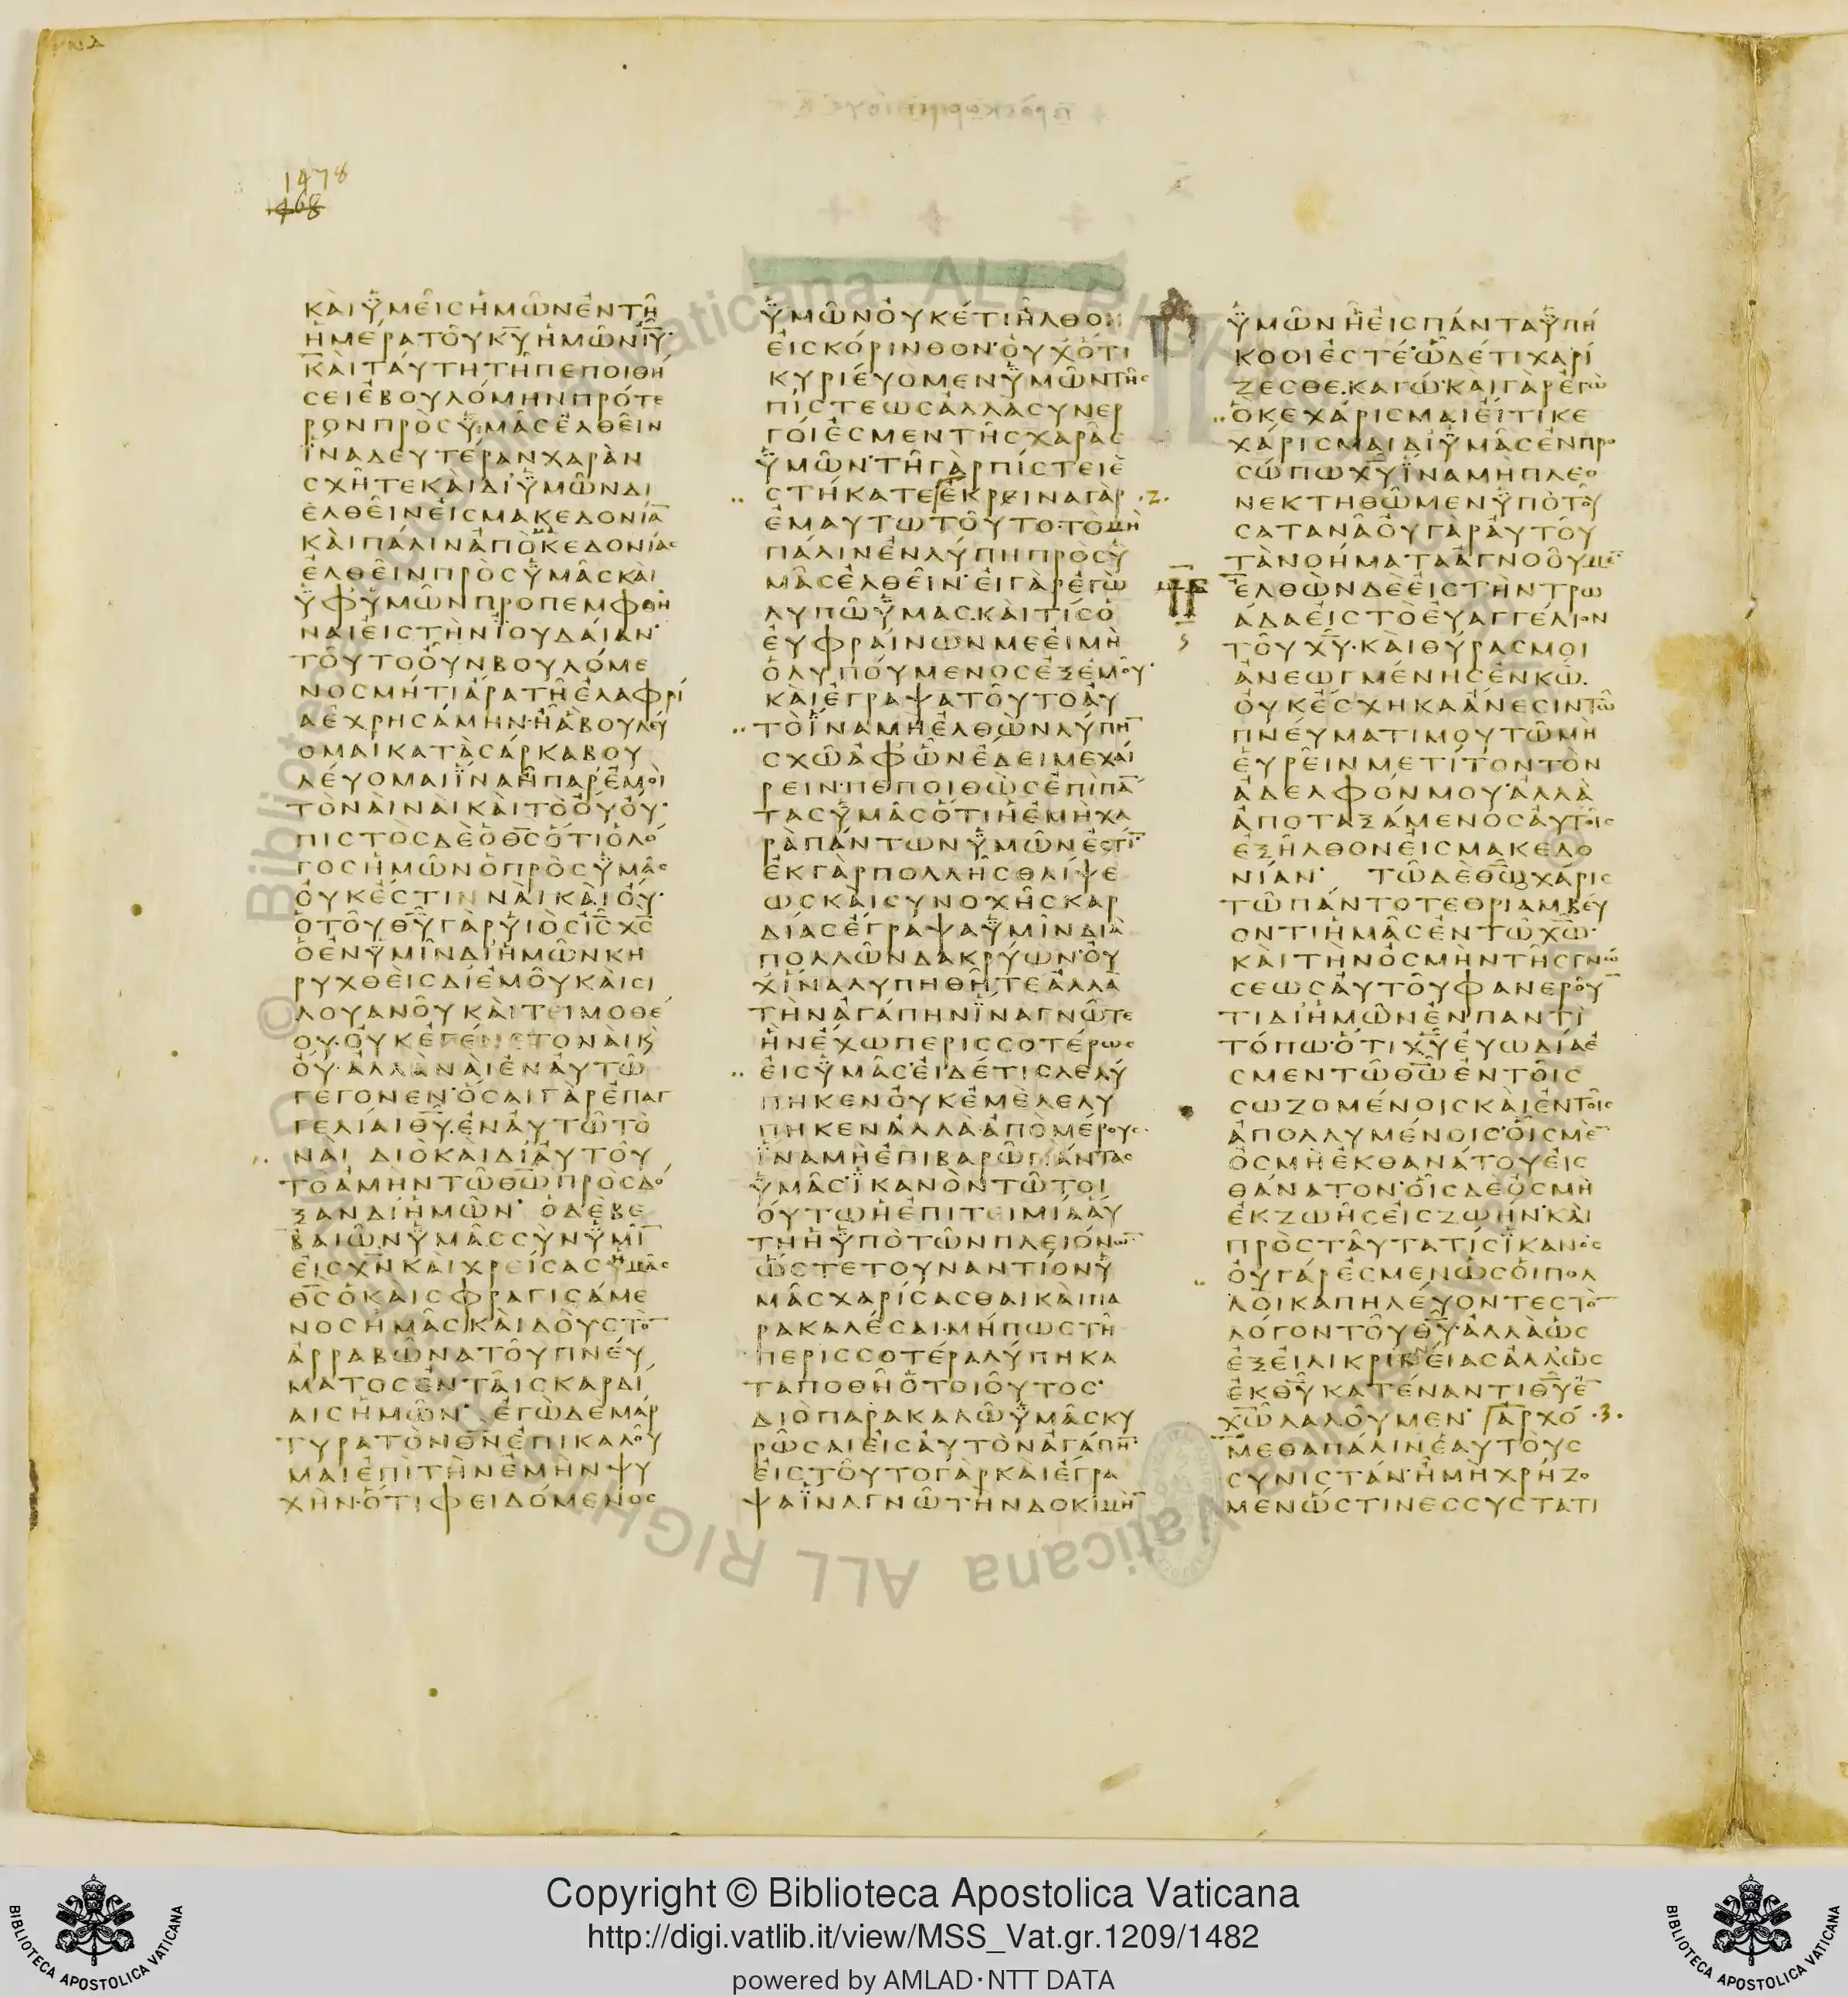 1478
468
ΚΑΙΥΜΕΙСΗΜΩΝΕΝΤΗ
ΗΜΕΡΑΤΟΥΚ̅Υ̅ΗΜΩΝΙ̅Υ̅
ΚΑΙΤΑΥΤΗΤΗΠΕΠΟΙΘΗ
СΕΙΕΒΟΥΛΟΜΗΝΠΡΟΤΕ
ΡΟΝΠΡΟСΥΜΑСΕΛΘΕΙΝ
ΙΝΑΔΕΥΤΕΡΑΝΧΑΡΑΝ
СΧΗΤΕΚΑΙΔΙΥΜΩΝΔΙ
ΕΛΘΕΙΝΕΙСΜΑΚΕΔΟΝΙΑ̅
ΚΑΙΠΑΛΙΝΑΠΟΜΑΚΕΔΟΝΙΑС
ΕΛΘΕΙΝΠΡΟСΥΜΑСΚΑΙ
ΥΦΥΜΩΝΠΡΟΠΕΜΦΘΗ
ΝΑΙΕΙСΤΗΝΙΟΥΔΑΙΑΝ
ΤΟΥΤΟΟΥΝΒΟΥΛΟΜΕ
ΝΟСΜΗΤΙΑΡΑΤΗΕΛΑΦΡΙ
ΑΕΧΡΗСΑΜΗΝ·ΗΑΒΟΥΛΕΥ
ΟΜΑΙΚΑΤΑСΑΡΚΑΒΟΥ
ΛΕΥΟΜΑΙΙΝΑΗΠΑΡΕΜΟΙ
ΤΟΝΑΙΝΑΙΚΑΙΤΟΟΥΟΥ·
ΠΙСΤΟСΔΕΟΘ̅С̅ΟΤΙΟΛΟ
ΓΟСΗΜΩΝΟΠΡΟСΥΜΑС
ΟΥΚΕСΤΙΝΝΑΙΚΑΙΟΥ·
ΟΤΟΥΘ̅Υ̅ΓΑΡΥΙΟСΙ̅С̅Χ̅С̅
ΟΕΝΥΜΙΝΔΙΗΜΩΝΚΗ
ΡΥΧΘΕΙСΔΙΕΜΟΥΚΑΙСΙ
ΛΟΥΑΝΟΥΚΑΙΤΕΙΜΟΘΕ
ΟΥ·ΟΥΚΕΓΕΝΕΤΟΝΑΙΚϚ
ΟΥ·ΑΛΛΑΝΑΙΕΝΑΥΤΩ
ΓΕΓΟΝΕΝ·ΟСΑΙΓΑΡΕΠΑΓ
ΓΕΛΙΑΙΘ̅Υ̅·ΕΝΑΥΤΩΤΟ
ΝΑΙ ΔΙΟΚΑΙΔΙΑΥΤΟΥ
ΤΟΑΜΗΝΤΩΘ̅Ω̅ΠΡΟСΔΟ
ΞΑΝΔΙΗΜΩΝ· ΟΔΕΒΕ
ΒΑΙΩΝΥΜΑССΥΝΥΜΙ̅
ΕΙСΧ̅Ν̅ΚΑΙΧΡΕΙСΑСΗΜΑС
Θ̅С̅ΟΚΑΙСΦΡΑΓΙСΑΜΕ
ΝΟСΗΜΑСΚΑΙΔΟΥСΤΟ̅
ΑΡΡΑΒΩΝΑΤΟΥΠΝΕΥ
ΜΑΤΟСΕΝΤΑΙСΚΑΡΔΙ
ΑΙСΗΜΩΝ· ΕΓΩΔΕΜΑΡ
ΤΥΡΑΤΟΝΘ̅Ν̅ΕΠΙΚΑΛΟΥ
ΜΑΙΕΠΙΤΗΝΕΜΗΝΨΥ
ΧΗΝ·ΟΤΙΦΕΙΔΟΜΕΝΟС
ΥΜΩΝΟΥΚΕΤΙΗΛΘΟΝ
ΕΙСΚΟΡΙΝΘΟΝ·ΟΥΧΟΤΙ
ΚΥΡΙΕΥΟΜΕΝΥΜΩΝΤΗС
ΠΙСΤΕΩСΑΛΛΑСΥΝΕΡ
ΓΟΙΕСΜΕΝΤΗСΧΑΡΑС
ΥΜΩΝ·ΤΗΓΑΡΠΙСΤΕΙΕ
СΤΗΚΑΤΕΕΚΡΕΙΝΑΓΑΡ ·2·
ΕΜΑΥΤΩΤΟΥΤΟ·ΤΟΜΗ
ΠΑΛΙΝΕΝΛΥΠΗΠΡΟСΥ
ΜΑСΕΛΘΕΙΝ·ΕΙΓΑΡΕΓΩ
ΛΥΠΩΥΜΑС·ΚΑΙΤΙСΟ
ΕΥΦΡΑΙΝΩΝΜΕΕΙΜΗ
ΟΛΥΠΟΥΜΕΝΟСΕΞΕΜΟΥ·
ΚΑΙΕΓΡΑΨΑΤΟΥΤΟΑΥ
ΤΟΙΝΑΜΗΕΛΘΩΝΛΥΠΗ̅
СΧΩΑΦΩΝΕΔΕΙΜΕΧΑΙ
ΡΕΙΝ·ΠΕΠΟΙΘΩСΕΠΙΠΑ̅
ΤΑСΥΜΑСΟΤΙΗΕΜΗΧΑ
ΡΑΠΑΝΤΩΝΥΜΩΝΕСΤΙ̅
ΕΚΓΑΡΠΟΛΛΗСΘΛΙΨΕ
ΩСΚΑΙСΥΝΟΧΗСΚΑΡ
ΔΙΑСΕΓΡΑΨΑΥΜΙΝΔΙΑ
ΠΟΛΛΩΝΔΑΚΡΥΩΝ·ΟΥ
ΧΙΝΑΛΥΠΗΘΗΤΕΑΛΛΑ
ΤΗΝΑΓΑΠΗΝΙΝΑΓΝΩΤΕ
ΗΝΕΧΩΠΕΡΙССΟΤΕΡΩС
ΕΙСΥΜΑС·ΕΙΔΕΤΙСΛΕΛΥ
ΠΗΚΕΝΟΥΚΕΜΕΛΕΛΥ
ΠΗΚΕΝΑΛΛΑ·ΑΠΟΜΕΡΟΥС·
ΙΝΑΜΗΕΠΙΒΑΡΩΠΑΝΤΑС
ΥΜΑС·ΙΚΑΝΟΝΤΩΤΟΙ
ΟΥΤΩΗΕΠΙΤΕΙΜΙΑΑΥ
ΤΗΗΥΠΟΤΩΝΠΛΕΙΟΝΩ̅
ΩСΤΕΤΟΥΝΑΝΤΙΟΝΥ
ΜΑСΧΑΡΙСΑСΘΑΙΚΑΙΠΑ
ΡΑΚΑΛΕСΑΙ·ΜΗΠΩСΤΗ
ΠΕΡΙССΟΤΕΡΑΛΥΠΗΚΑ
ΤΑΠΟΘΗΟΤΟΙΟΥΤΟС·
ΔΙΟΠΑΡΑΚΑΛΩΥΜΑСΚΥ
ΡΩСΑΙΕΙСΑΥΤΟΝΑΓΑΠΗ̅
ΕΙСΤΟΥΤΟΓΑΡΚΑΙΕΓΡΑ
ΨΑΙΝΑΓΝΩΤΗΝΔΟΚΙΜΗ̅
ΥΜΩΝΗΕΙСΠΑΝΤΑΥΠΗ
ΚΟΟΙΕСΤΕ·ΩΔΕΤΙΧΑΡΙ
ΖΕСΘΕ·ΚΑΓΩ·ΚΑΙΓΑΡΕΓΩ
ΟΚΕΧΑΡΙСΜΑΙΕΙΤΙΚΕ
ΧΑΡΙСΜΑΙΔΙΥΜΑСΕΝΠΡΟ
СΩΠΩΧ̅Υ̅ΙΝΑΜΗΠΛΕΟ
ΝΕΚΤΗΘΩΜΕΝΥΠΟΤΟΥ
СΑΤΑΝΑΟΥΓΑΡΑΥΤΟΥ
ΤΑΝΟΗΜΑΤΑΑΓΝΟΟΥΜΕ̅
ΕΛΘΩΝΔΕΕΙСΤΗΝΤΡΩ
ΑΔΑΕΙСΤΟΕΥΑΓΓΕΛΙΟΝ
ΤΟΥΧ̅Υ̅·ΚΑΙΘΥΡΑСΜΟΙ
ΑΝΕΩΓΜΕΝΗСΕΝΚ̅Ω̅·
ΟΥΚΕСΧΗΚΑΑΝΕСΙΝΤΩ
ΠΝΕΥΜΑΤΙΜΟΥΤΩΜΗ
ΕΥΡΕΙΝΜΕΤΙΤΟΝΤΟΝ
ΑΔΕΛΦΟΝΜΟΥ·ΑΛΛΑ
ΑΠΟΤΑΞΑΜΕΝΟСΑΥΤΟΙС
ΕΞΗΛΘΟΝΕΙСΜΑΚΕΔΟ
ΝΙΑΝ· ΤΩΔΕΘ̅Ω̅ΧΑΡΙС
ΤΩΠΑΝΤΟΤΕΘΡΙΑΜΒΕΥ
ΟΝΤΙΗΜΑСΕΝΤΩΧ̅Ω̅·
ΚΑΙΤΗΝΟСΜΗΝΤΗСΓΝΩ
СΕΩСΑΥΤΟΥΦΑΝΕΡΟΥ̅
ΤΙΔΙΗΜΩΝΕΝΠΑΝΤΙ
ΤΟΠΩ·ΟΤΙΧ̅Υ̅ΕΥΩΔΙΑΕ
СΜΕΝΤΩΘ̅Ω̅ΕΝΤΟΙС
СΩΖΟΜΕΝΟΙСΚΑΙΕΝΤΟΙС
ΑΠΟΛΛΥΜΕΝΟΙС·ΟΙСΜΕ̅
ΟСΜΗΕΚΘΑΝΑΤΟΥΕΙС
ΘΑΝΑΤΟΝ·ΟΙСΔΕΟСΜΗ
ΕΚΖΩΗСΕΙСΖΩΗΝ·ΚΑΙ
ΠΡΟСΤΑΥΤΑΤΙСΙΚΑΝΟС
ΟΥΓΑΡΕСΜΕΝΩСΟΙΠΟΛ
ΛΟΙΚΑΠΗΛΕΥΟΝΤΕСΤΟ̅
ΛΟΓΟΝΤΟΥΘ̅Υ̅·ΑΛΛΑΩС
ΕΞΕΙΛΙΚΡΙΝΕΙΑСΑΛΛΩС
ΕΚΘ̅Υ̅ΚΑΤΕΝΑΝΤΙΘ̅Υ̅Ε̅
Χ̅Ω̅ΛΑΛΟΥΜΕΝ· ΑΡΧΟ ·3·
ΜΕΘΑΠΑΛΙΝΕΑΥΤΟΥС
СΥΝΙСΤΑΝ·ΗΜΗΧΡΗΖΟ
ΜΕΝΩСΤΙΝΕССΥСΤΑΤΙ
Copyright © Biblioteca Apostolica Vaticana
http://digi.vatlib.it/view/MSS_Vat.gr.1209/1482
powered by AMLAD·NTT DATA
BIBLIOTECA APOSTOLICA VATICANA
BIBLIOTECA APOSTOLICA VATICANA